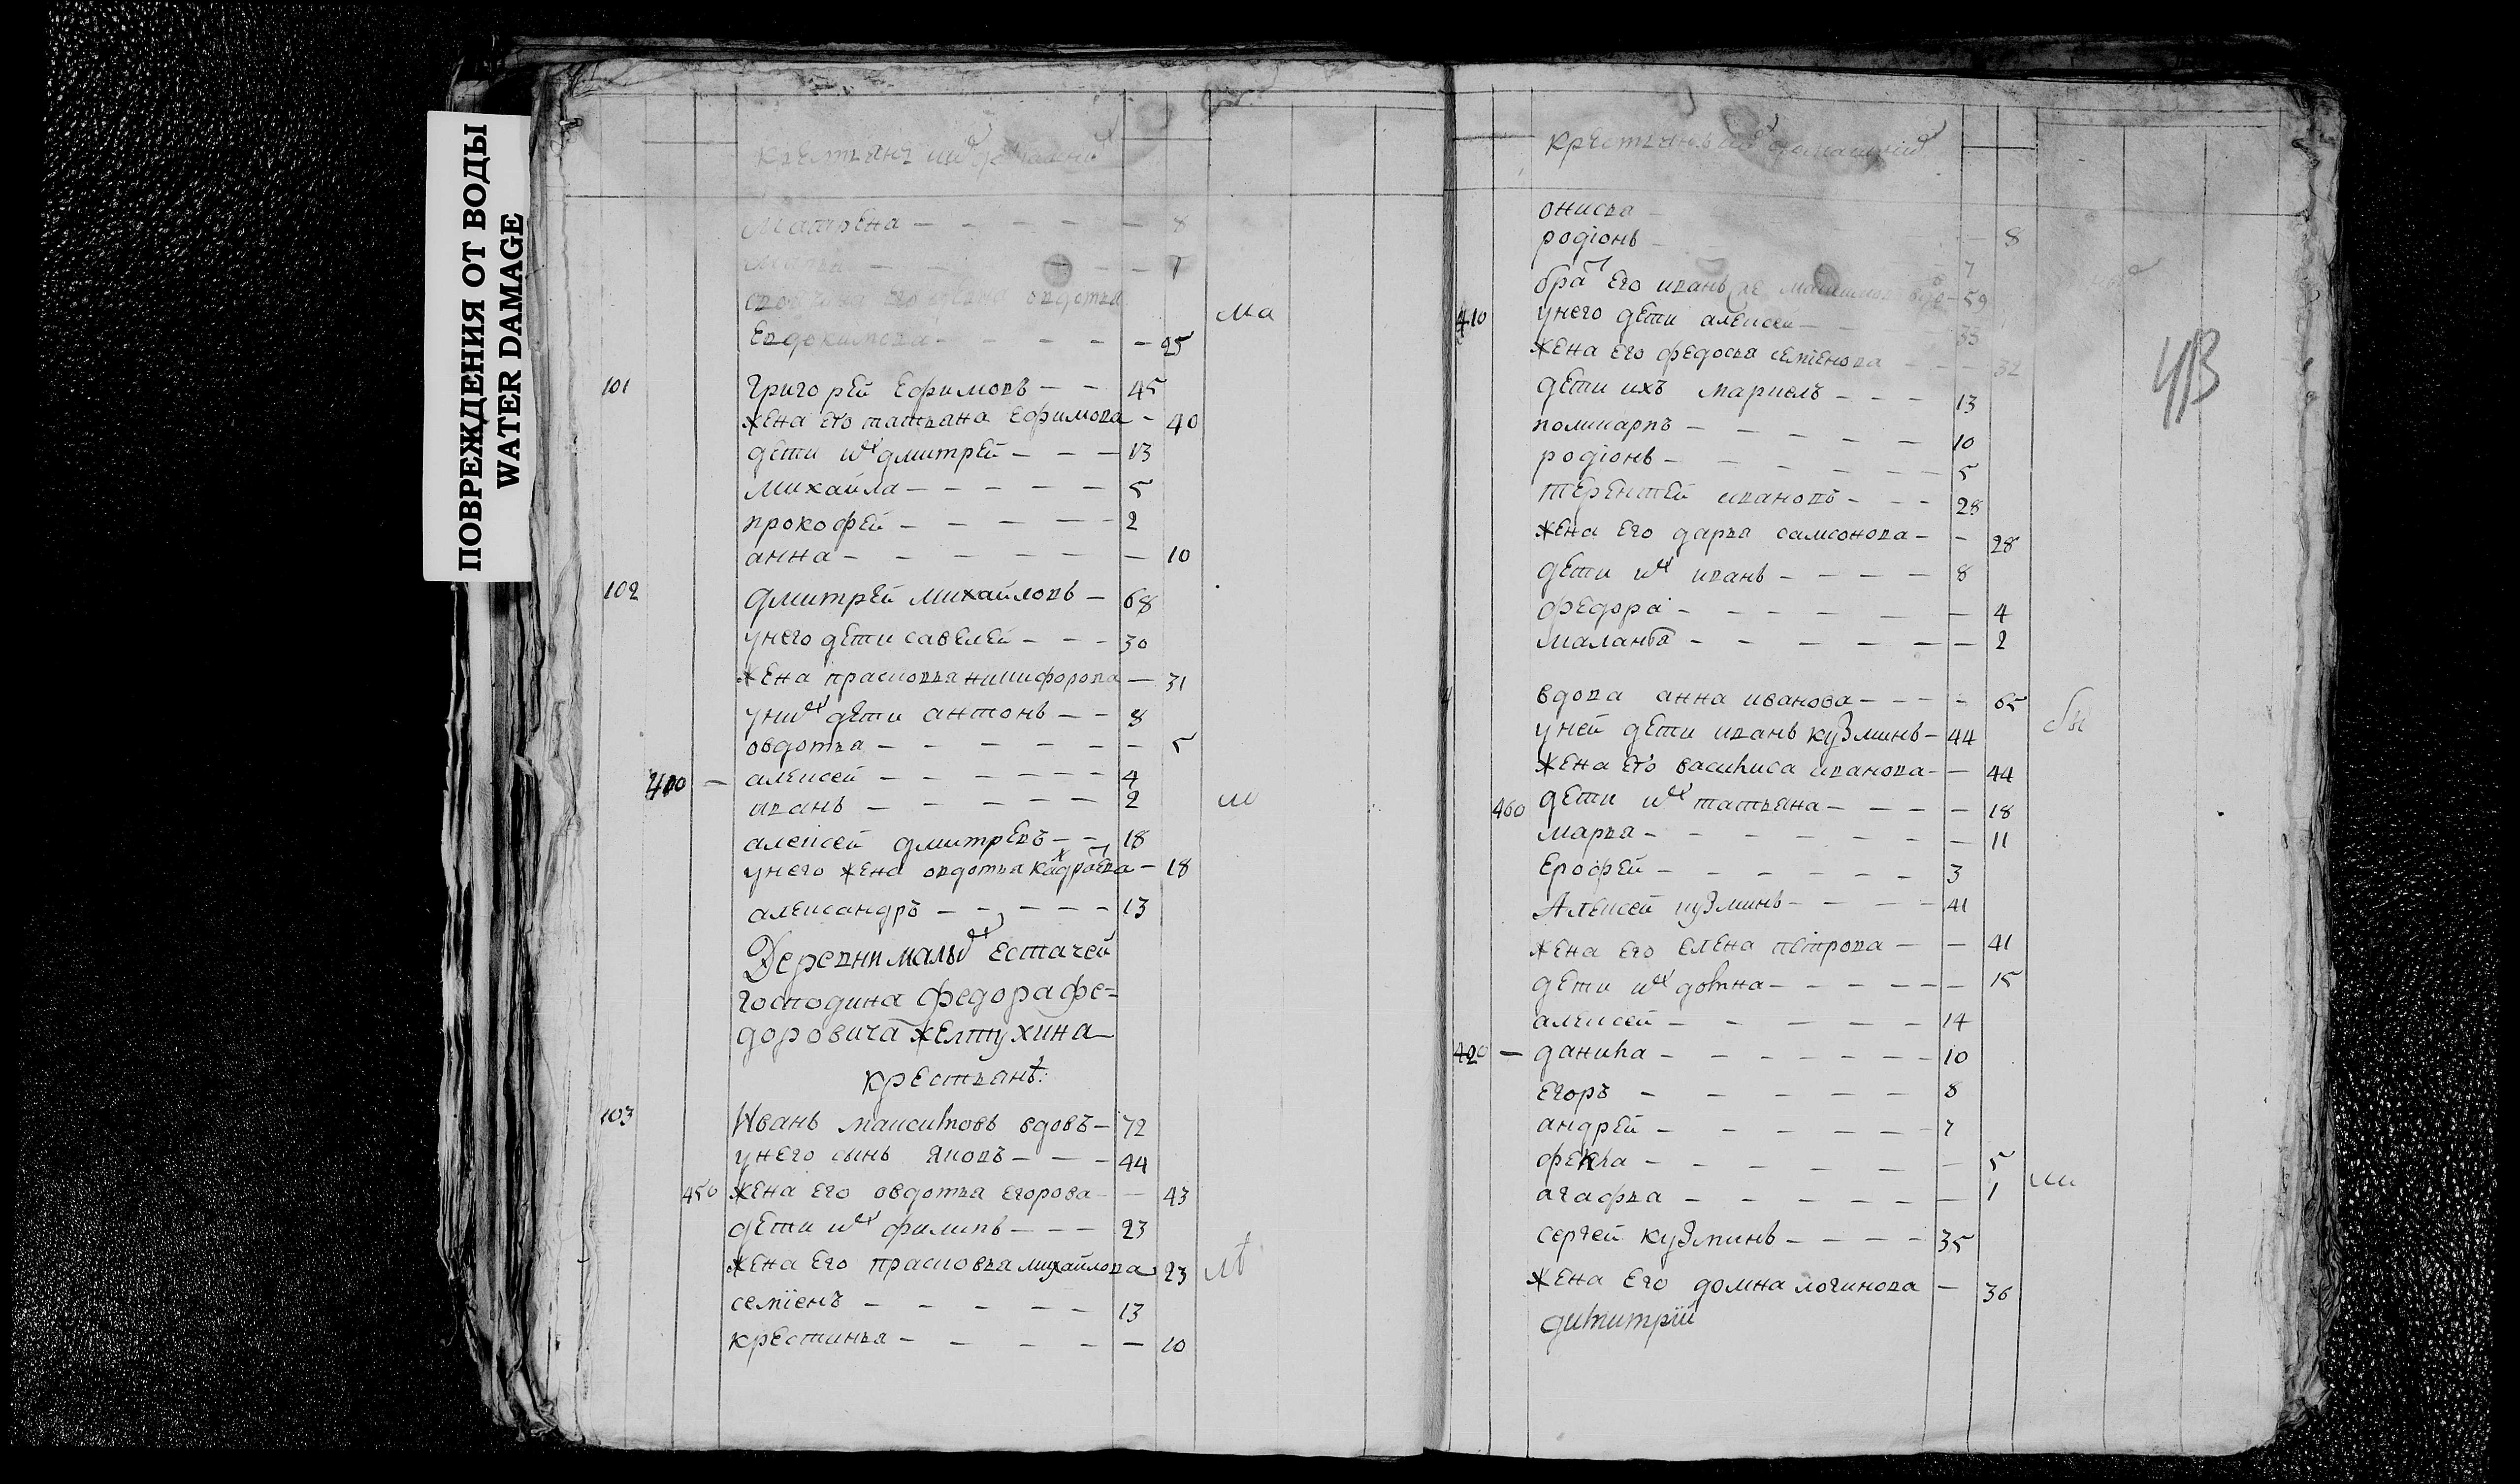 ПОВРЕЖДЕНИЯ ОТ ВОДЫ
WATER DAMAGE
крестьянъ
матрена — 8
марья — 7
его овдотья
Евдокимова — 25
ма
101 григорей Ефимовъ — 45
жена его татьяна Ефимова — 40
дети их дмитрей — 13
михайла — 5
прокофей — 2
анна — 10
102 дмитрей михайловъ — 68
унего дети савелей — 30
жена прасковья никифорова — 31
у них дети антонъ — 8
овдотья — 5
400 — алексей — 4
иванъ — 2
алексей дмитревъ — 18
унего жена овдотья — 18
александръ — 13
Деревни малых Естачей
господина федора фе-
доровича желтухина
крестьянъ:
103 Иванъ максимовъ вдовъ — 72
унего сынъ яковъ — 44
450 жена его овдотья егорова — 43
дети их филипъ — 23
жена его прасковья михайлова 23
семіенъ — 13
крестинья — 10
онисья
родіонъ — 8
7
брат его иванъ — 59
410 унего дети алексей — 33
жена его федосья семіенова — 32
дети ихъ маркелъ — 13
поликарпъ — 10
родіонъ — 5
терентей ивановъ — 28
жена его дарья самсонова — 28
дети их иванъ — 8
федора — 4
маланья — 2
вдова анна иванова — 65
уней дети иванъ кузминъ — 44
жена его василиса иванова — 44
460 дети их татьяна — 18
марья — 11
Ерофей — 3
Алексей кузминъ — 41
жена его елена петрова — 41
дети их домна — 15
алексей — 14
420 — данила — 10
егоръ — 8
андрей — 7
фекла — 5
агафья — 1
сергей кузминъ — 35
жена его домна логинова — 36
димитрій